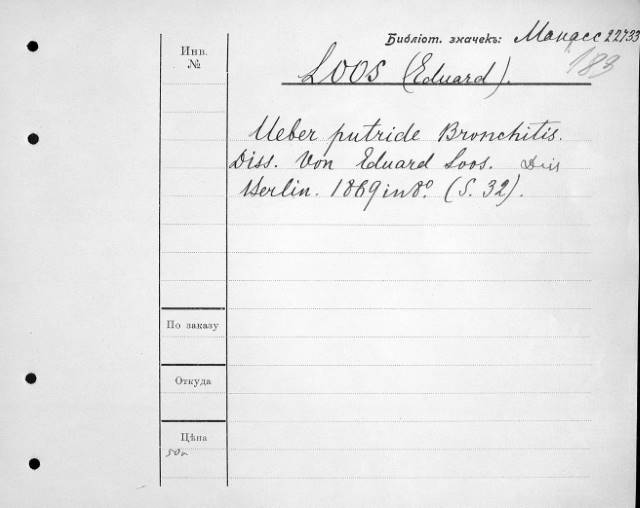 Библіот. значекъ: Манасс 22733
183
Инв.
№
LOOS (Eduard).
Ueber putride Bronchitis.
Diss. Von Eduard Loos. Diss
Berlin. 1869 in 8°. (S. 32).
По заказу
Откуда
Цѣна
50к